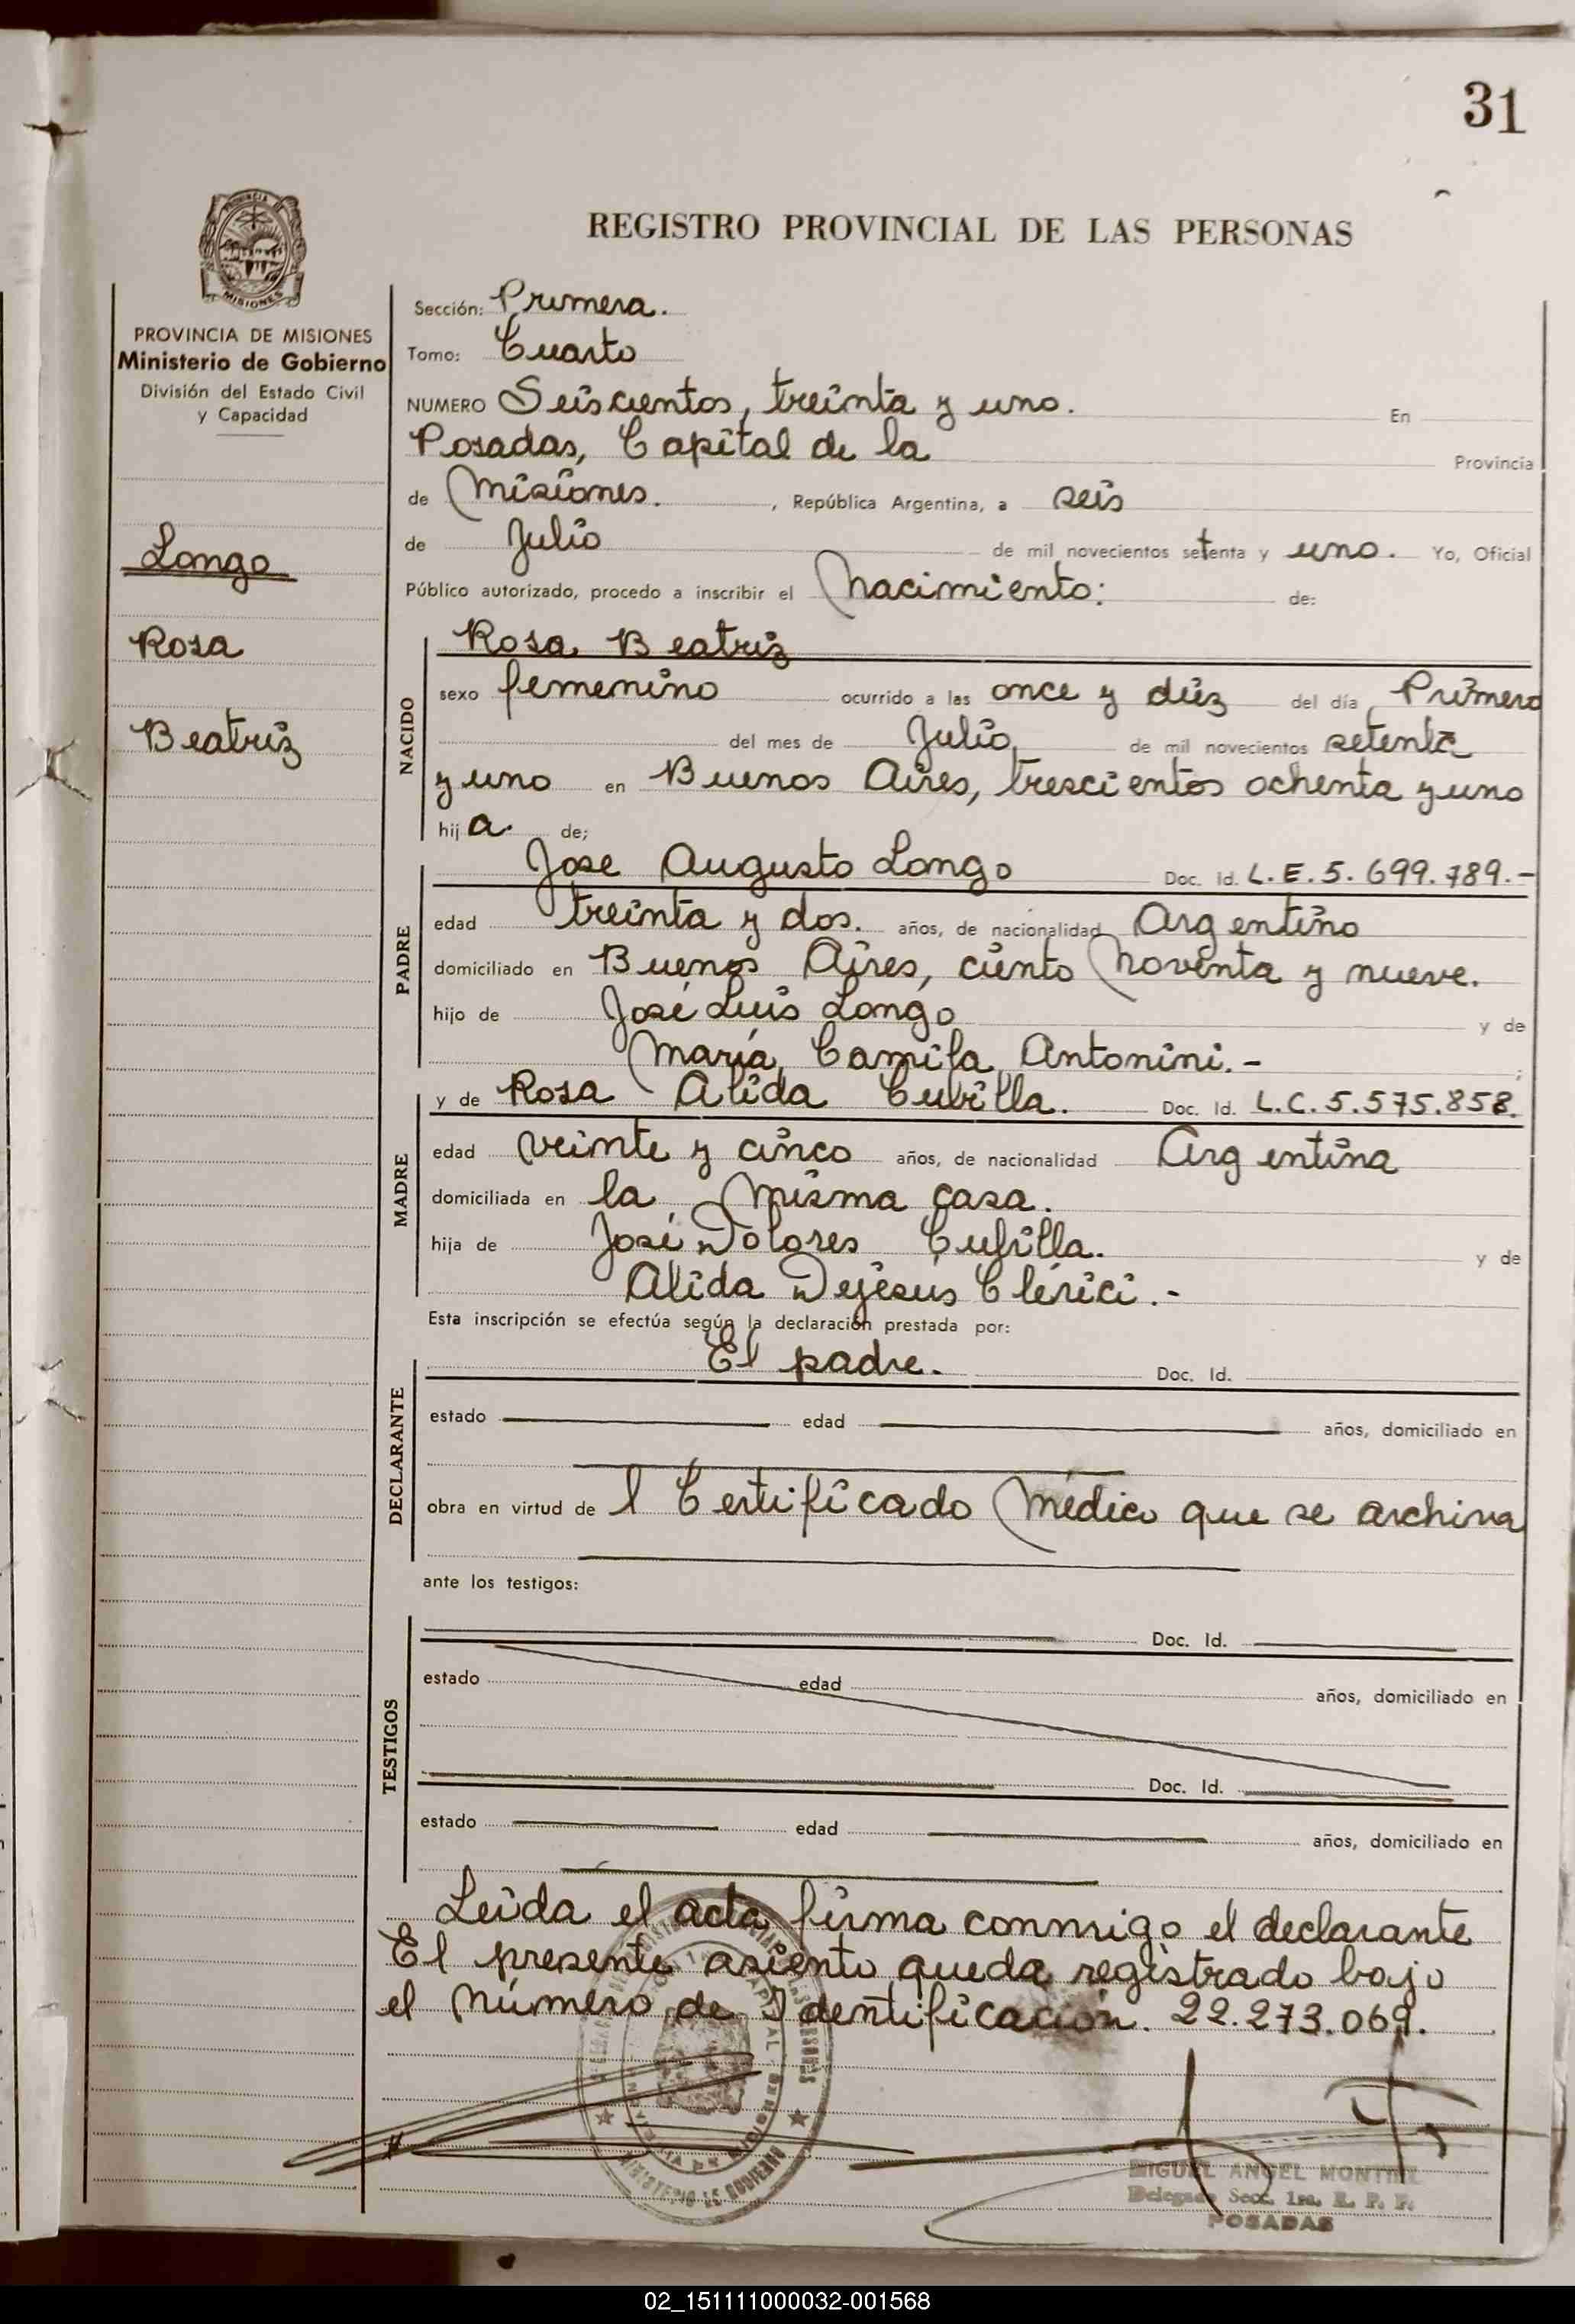 31
REGISTRO PROVINCIAL DE LAS PERSONAS
PROVINCIA DE MISIONES
Ministerio de Gobierno
División del Estado Civil
y Capacidad
Longo
Rosa
Beatriz
Sección: Primera.
Tomo: Cuarto
NUMERO Seiscientos, treinta y uno. En
Posadas, Capital de la Provincia
de Misiones. , República Argentina, a seis
de Julio de mil novecientos setenta y uno. Yo, Oficial
Público autorizado, procedo a inscribir el Nacimiento: de:
NACIDO
Rosa Beatriz
sexo femenino ocurrido a las once y diez del día Primero
del mes de Julio de mil novecientos setenta
y uno en Buenos Aires, trescientos ochenta y uno
hij a. de;
PADRE
Jose Augusto Longo Doc. Id. L.E. 5.699.789.-
edad treinta y dos. años, de nacionalidad Argentino
domiciliado en Buenos Aires, ciento Noventa y nueve.
hijo de José Luis Longo y de
María Camila Antonini.- ;
MADRE
y de Rosa Alida Cubilla. Doc. Id. L.C. 5.575.858.
edad veinte y cinco años, de nacionalidad Argentina
domiciliada en la misma casa.
hija de José Dolores Cubilla. y de
Alida Dejesús Clérici.-
Esta inscripción se efectúa según la declaración prestada por:
DECLARANTE
El padre. Doc. Id.
estado edad años, domiciliado en
obra en virtud de l Certificado Médico que se archiva
ante los testigos:
TESTIGOS
Doc. Id.
estado edad años, domiciliado en
Doc. Id.
estado edad años, domiciliado en
Leída el acta firma conmigo el declarante
El presente asiento queda registrado bajo
el Número de Identificación. 22.273.069.
MINISTERIO DE GOBIERNO
MIGUEL ANGEL
Delegado Secc. 1ra. R. P. P.
POSADAS
02_151111000032-001568